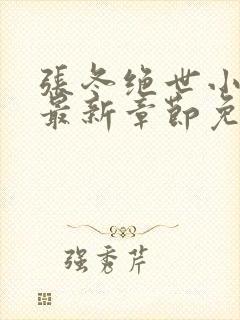 張冬绝世小
最新章節免
强秀芹